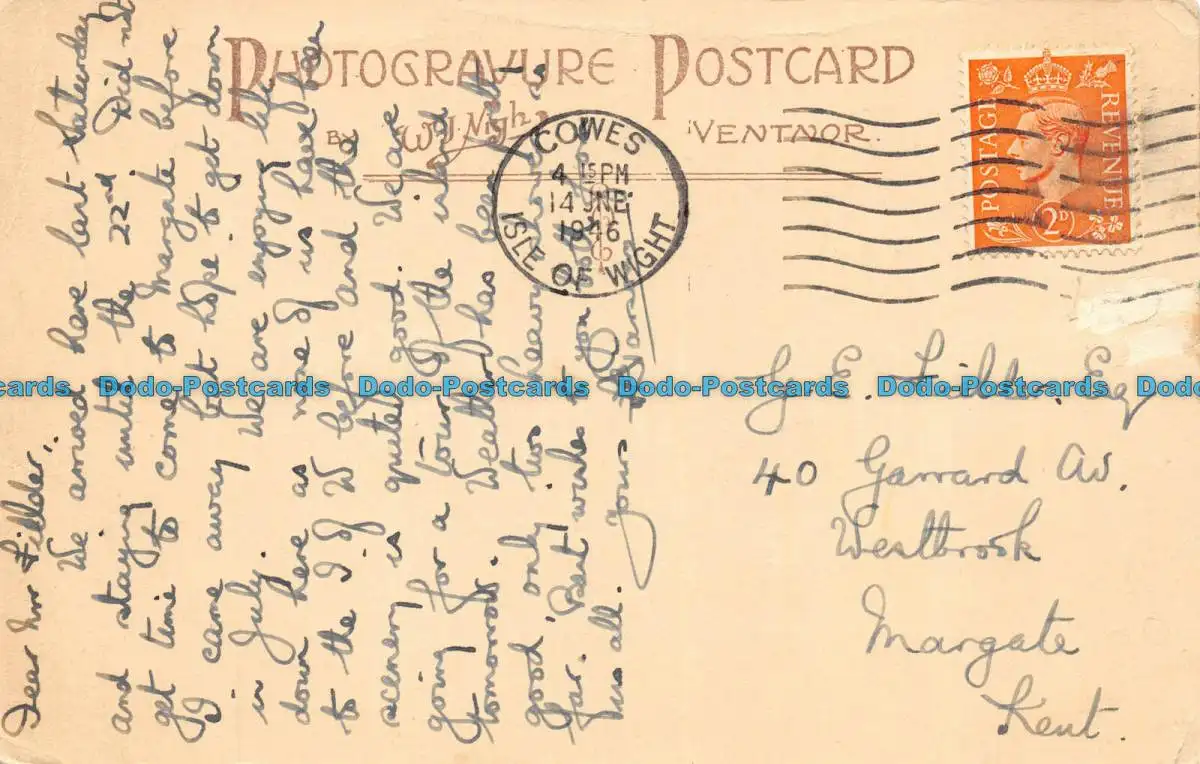 PHOTOGRAVURE POSTCARD
BY W.J. Nigh, VENTNOR.
COWES
4 15 PM
14 JNE
1946
ISLE OF WIGHT
POSTAGE REVENUE
2D
Dear Mr Fielder.
We arrived here last Saturday
and staying until the 22nd Did not
get time to come to Margate before
I came away but hope to get down
in July. We are enjoying life
down here as none of us have been
to the I of W before and the
scenery is quite good. We are
going for a tour of the island
tomorrow. Weather has been
good, only two heavy showers so
far. Best wishes to you
all. Yours
E. Fielder. Esq
40 Garrard Av.
Westbrook
Margate
Kent.
Dodo-Postcards Dodo-Postcards Dodo-Postcards Dodo-Postcards Dodo-Postcards